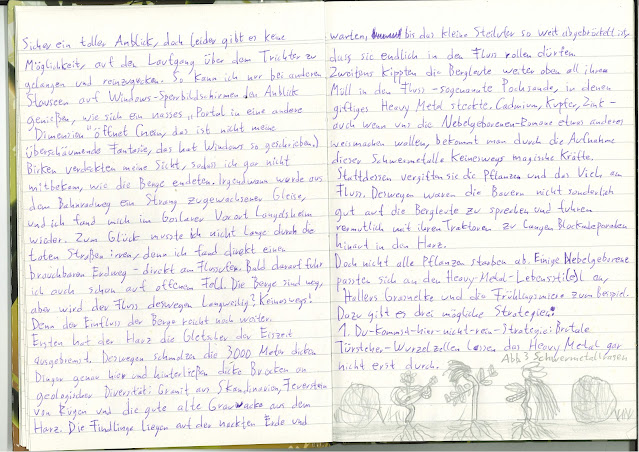 Sicher ein toller Anblick, doch leider gibt es keine
Möglichkeit, auf den Laufgang über dem Trichter zu
gelangen und reinzugucken. So kann ich nur bei anderen
Stauseen auf Windows-Sperrbildschirmen den Anblick
genießen, wie sich ein nasses „Portal in eine andere
Dimension" öffnet (nein, das ist nicht meine
überschäumende Fantasie, das hat Windows so geschrieben.)
Birken verdeckten meine Sicht, sodass ich gar nicht
mitbekam, wie die Berge endeten. Irgendwann wurde aus
dem Bahnradweg ein Strang zugewachsener Gleise,
und ich fand mich im Goslarer Vorort Langelsheim
wieder. Zum Glück musste ich nicht lange durch die
toten Straßen irren, denn ich fand direkt einen
brauchbaren Erdweg - direkt am Flussufer. Bald darauf fuhr
ich auch schon auf offenem Feld. Die Berge sind weg,
aber wird der Fluss deswegen langweilig? Keineswegs!
Denn der Einfluss der Berge reicht noch weiter.
Erstens hat der Harz die Gletscher der Eiszeit
ausgebremst. Deswegen schmolzen die 3000 Meter dicken
Dinger genau hier und hinterließen dicke Brocken an
geologischer Diversität: Granit aus Skandinavien, Feuerstein
von Rügen und die gute alte Grauwacke aus dem
Harz. Die Findlinge liegen auf der nackten Erde und
warten, bis das kleine Steilufer so weit abgebröckelt ist,
dass sie endlich in den Fluss rollen dürfen.
Zweitens kippten die Bergleute weiter oben all ihren
Müll in den Fluss - sogenannte Pochsande, in denen
giftiges Heavy Metal steckte. Cadmium, Kupfer, Zink -
auch wenn uns die Nebelgeborenen-Romane etwas anderes
weismachen wollen, bekommt man durch die Aufnahme
dieser Schwermetalle keineswegs magische Kräfte.
Stattdessen vergiften sie die Pflanzen und das Vieh am
Fluss. Deswegen waren die Bauern nicht sonderlich
gut auf die Bergleute zu sprechen und fuhren
vermutlich mit ihren Traktoren zu langen Blockadeparaden
hinauf in den Harz.
Doch nicht alle Pflanzen starben ab. Einige Nebelgeborene
passten sich an den Heavy-Metal-Lebenssti(e)l an,
Hallers Grasnelke und die Frühlingsmiere zum Beispiel.
Dazu gibt es drei mögliche Strategien:
1. Du-kommst-hier-nicht-rein-Strategie: Brutale
Türsteher-Wurzelzellen lassen das Heavy Metal gar
nicht erst durch.
Abb. 3 Schwermetallrasen